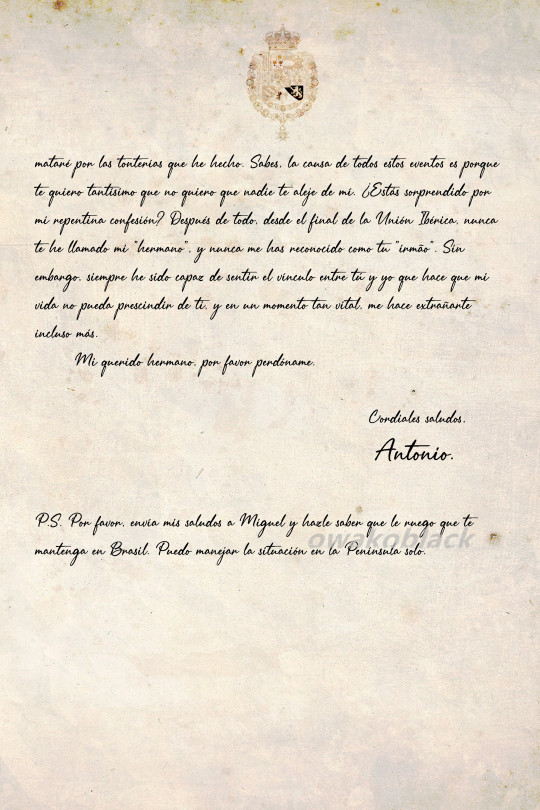 mataré por las tonterías que he hecho. Sabes, la causa de todos estos eventos es porque
te quiero tantísimo que no quiero que nadie te aleje de mi. ¿Estas sorprendido por
mi repentina confesión? Después de todo, desde el final de la Unión Ibérica, nunca
te he llamado mi "hermano", y nunca me has reconocido como tu "irmão". Sin
embargo, siempre he sido capaz de sentir el vínculo entre tú y yo que hace que mi
vida no pueda prescindir de ti, y en un momento tan vital, me hace extrañarte
incluso más.
Mi querido hermano, por favor perdóname.
Cordiales saludos,
Antonio.
P.S. Por favor, envía mis saludos a Miguel y hazle saber que le ruego que te
mantenga en Brasil. Puedo manejar la situación en la Península solo.
owakoblack